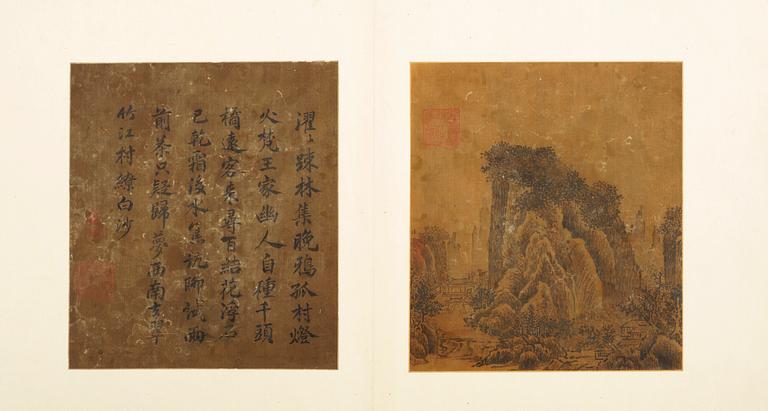 濯〻踈林集晚鴉孤村燈
火梵王家幽人自種千頭
橘遠客來尋百結花浮石
已乾霜後水焦坑聊試雨
前茶只疑歸夢西南去翠
竹江村繚白沙